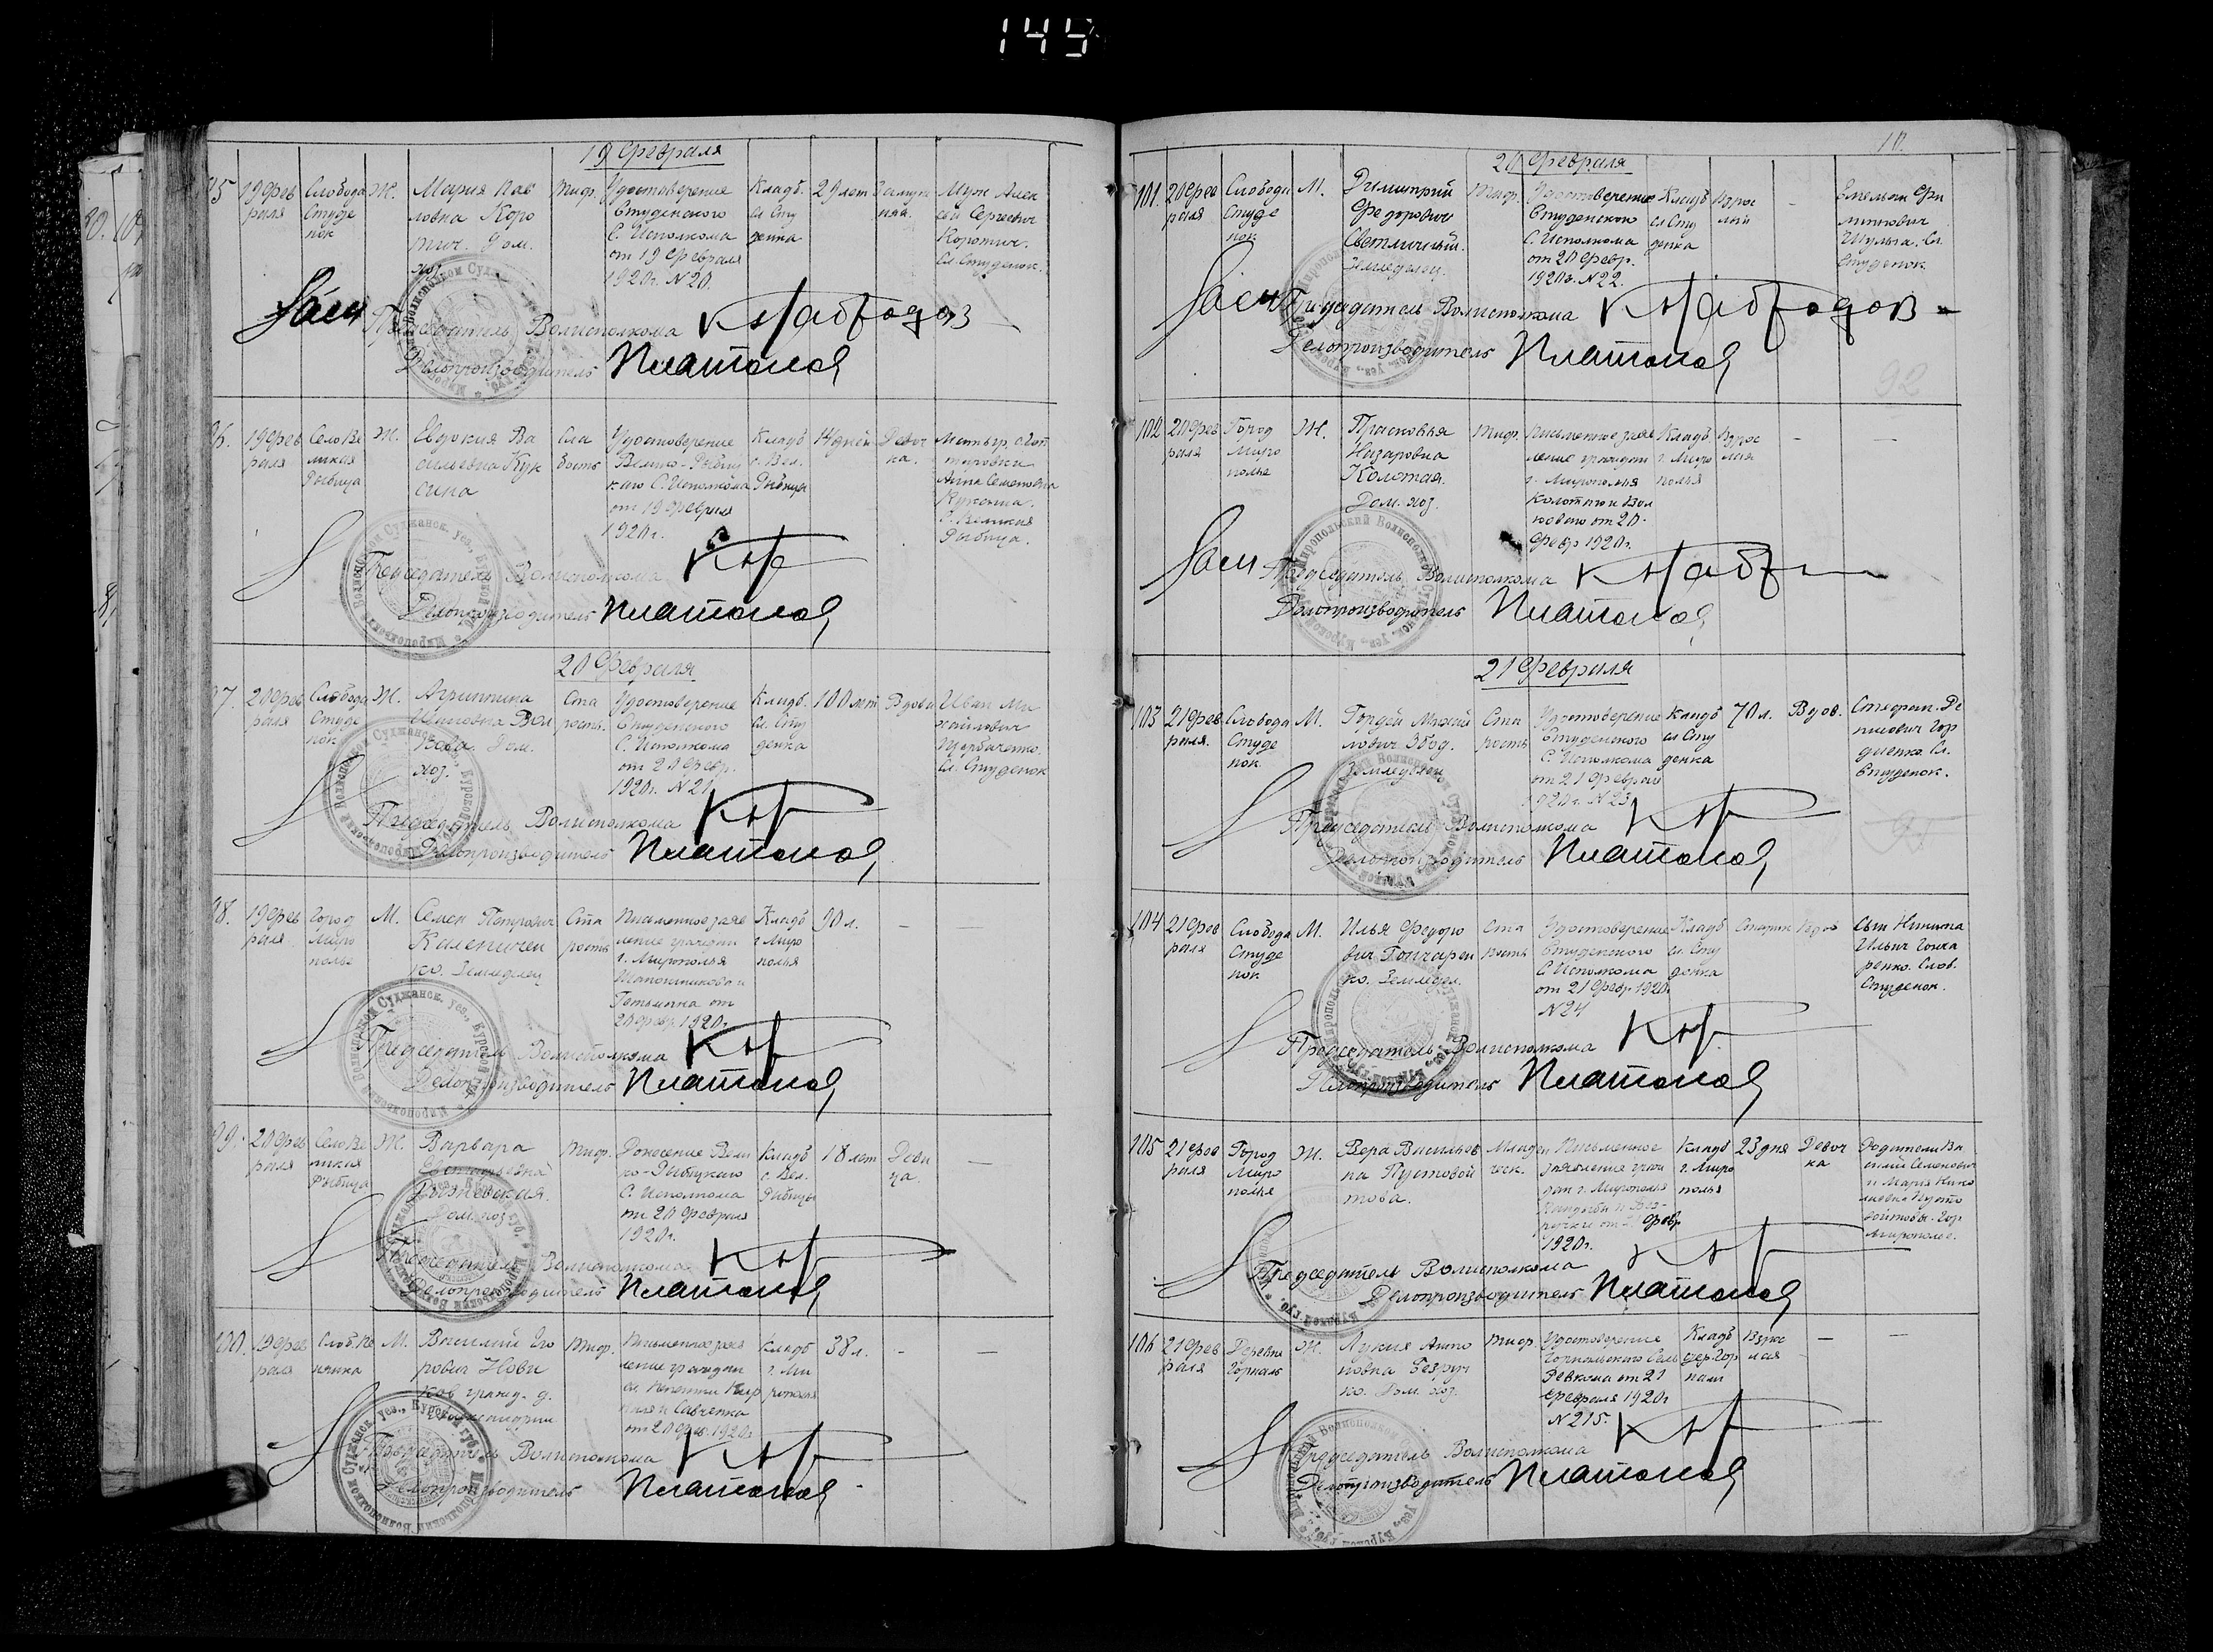 145
19 Февраля
95
19 Фев
раля
Слобода
Студе
нок
Ж.
Мария Пав
ловна Коро
тич. Дом.
хоз.
тиф.
Удостоверение
Студенского
С. Исполкома
от 19 Февраля
1920г. N20.
Кладб.
сл. Сту
денка
29 лет
Замуж
няя.
Муж Алек
сей Сергеевич
Коротич.
Сл. Студенок.
Председатель Волисполкома
Делопроизводитель Платонов
96.
19 Фев
раля
Село Ве
ликая
Рыбица
Ж.
Евдокия Ва
сильевна Кук
сина
Сла
бость
Удостоверение
Велико-Рыбиц
каго С. Исполкома
от 19 Февраля
1920г.
Кладб
с. Вел.
Рыбицы
14 дней
Девоч
ка.
Анна Семеновна
с. Великая
Рыбица.
Председатель Волисполкома
Делопроизводитель Платонов
20 Февраля
97.
20 Фев
раля
Слобода
Студе
нок
Ж.
Агриппина
Дом.
хоз.
Ста
рость.
Удостоверение
Студенского
С. Исполкома
от 20 Февр.
1920г. N21
Кладб.
сл. Сту
денка
100 лет
Вдова
Иван Ми
хайлович
Щербаченко.
Сл. Студенок
Председатель Волисполкома
Делопроизводитель Платонов
98.
19 Фев
раля
Город
Миро
полье
М.
Семен Петрович
Каленичен
ко. Земледелец
Ста
рость
Письменное заяв
ление граждан
г. Мирополья
от
20 Февр. 1920г.
Кладб
г. Миро
полья
90 л.
–
–
Председатель Волисполкома
Делопроизводитель Платонов
99.
20 Фев
раля
Село Ве
ликая
Рыбица
Ж.
Варвара
Дом. хоз.
тиф.
Донесение Вели
ко-Рыбицкаго
С. Исполкома
от 20 Февраля
1920г.
Кладб
с. Вел.
Рыбицы
18 лет
Деви
ца.
–
Председатель Волисполкома
Делопроизводитель Платонов
100.
19 Фев
раля
М.
Василий Его
рович Нови
ков гражд. д.
Александрии
тиф.
Письменное заяв
ление граждан
и Савченка
от 20 Фев. 1920г
Кладб
г. Ми
рополья
38 л.
-
–
Председатель Волисполкома
Делопроизводитель Платонов
10
20 Февраля
101.
20 Фев
раля
Слобода
Студе
нок
М.
Димитрий
Федорович
Светличный.
Земледелец.
тиф.
Удостоверение
Студенского
С. Исполкома
от 20 Февр.
1920г. N22.
Кладб
сл Сту
денка
Взрос
лый
-
Емельян Фи
липпович
Шульга. Сл.
Студенок.
Председатель Волисполкома
Делопроизводитель Платонов
92
102
20 Фев
раля
Город
Миро
полье
Ж.
Прасковья
Назаровна
Колотая.
Дом. хоз.
тиф.
Письменное заяв
ление граждан
г. Мирополья
от 20
Февр 1920г.
Кладб.
г. Миро
полья
Взрос
лая
–
–
Председатель Волисполкома
Делопроизводитель Платонов
21 Февраля
103
21 Фев
раля.
Слобода
Студе
нок
М.
Гордей Михай
лович
Земледелец
Ста
рость
Удостоверение
Студенского
С. Исполкома
от 21 Феврал
1920г. N23
Кладб
сл Сту
денка
70 л.
Вдов.
Стефан
Гор
диенко. Сл.
Студенок.
Председатель Волисполкома
Делопроизводитель Платонов
104
21 Фев
раля
Слобода
Студе
нок
М.
Илья Федоро
вич Гончарен
ко. Земледел.
Ста
рость
Удостоверение
Студенского
С. Исполкома
от 21 Февр. 1920г
N24
Кладб
сл. Сту
денка
Старик
Вдов
Сын Никита
Ильич Гонча
ренко. Слоб.
Студенок.
Председатель Волисполкома
Делопроизводитель Платонов
105
21 Фев
раля
Город
Миро
полье
Ж.
Вера Васильев
на Пустовой
това.
Младен
ческ.
Письменное
заявление граж
дан г. Мирополья
Февр
1920г.
Кладб
г. Миро
полья
23 дня
Девоч
ка
Родители Ва
силий Семенович
и Мария Нико
лаевна Пусто
войтовы. Гор
Мирополье.
Председатель Волисполкома
Делопроизводитель Платонов
106
21 Фев
раля
Деревня
Горналь
Ж.
Лукия Анто
новна Безруч
ко. Дом. хоз.
тиф.
Удостоверение
Горнальского Сель
Ревкома от 21
Февраля 1920г
N215.
Кладб
дер. Гор
нали
Взрос
лая
–
–
Председатель Волисполкома
Делопроизводитель Платонов